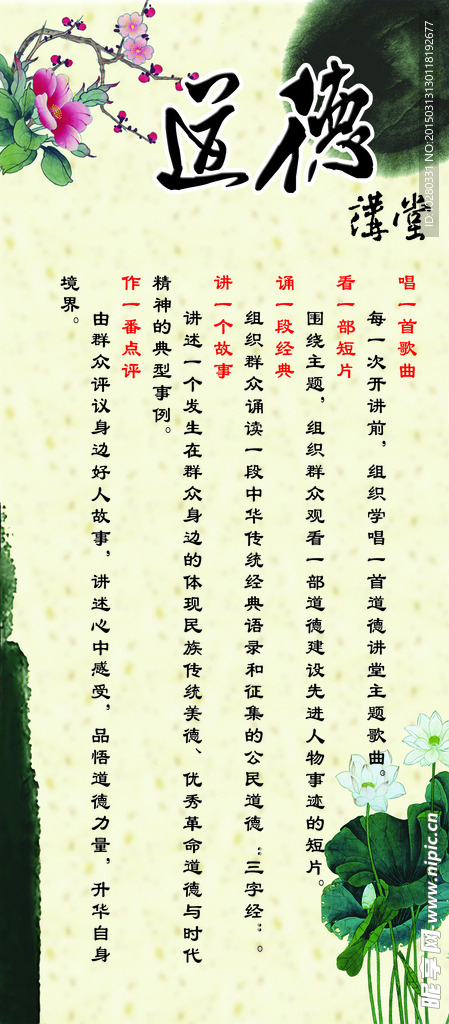 道德
講堂
唱一首歌曲
每一次开讲前，组织学唱一首道德讲堂主题歌曲。
看一部短片
围绕主题，组织群众观看一部道德建设先进人物事迹的短片。
诵一段经典
组织群众诵读一段中华传统经典语录和征集的公民道德“三字经”。
讲一个故事
讲述一个发生在群众身边的体现民族传统美德、优秀革命道德与时代
精神的典型事例。
作一番点评
由群众评议身边好人故事，讲述心中感受，品悟道德力量，升华自身
境界。
昵享网 www.nipic.cn
ID:10280331 NO:20150313130118192677